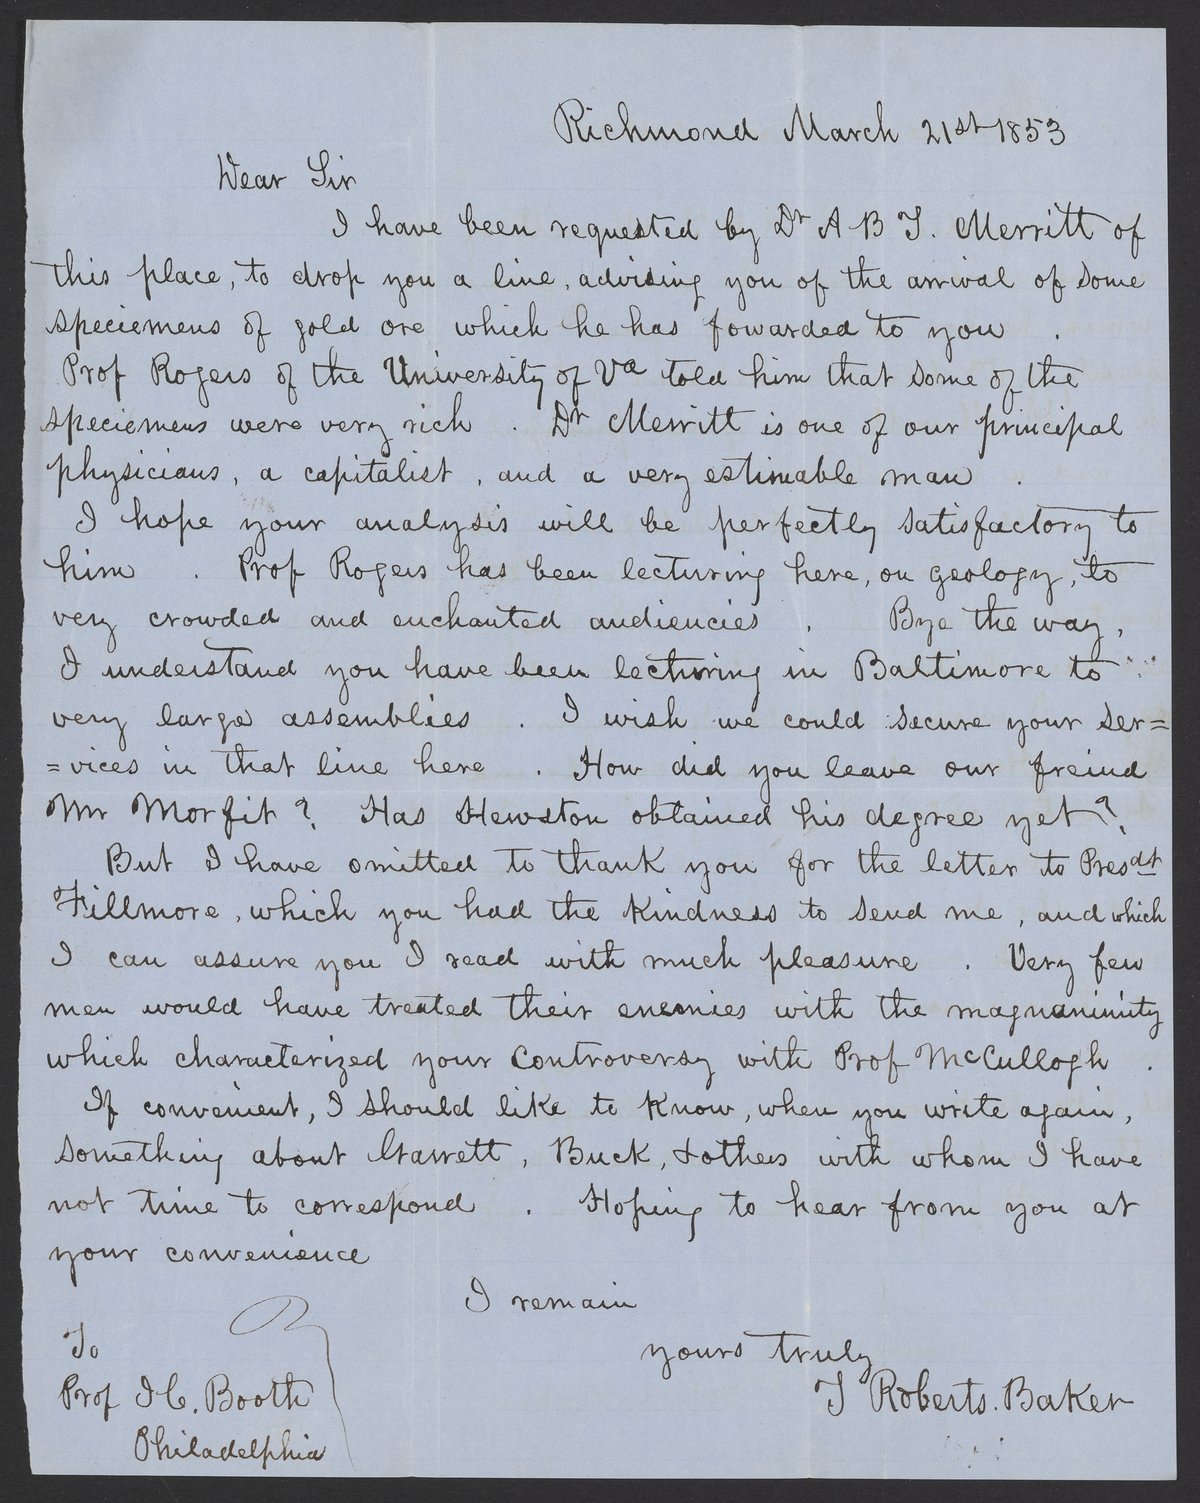 Richmond March 21st 1853
Dear Sir
I have been requested by Dr A B T. Merritt of
this place, to drop you a line, advising you of the arrival of some
speciemens of gold ore which he has fowarded to you .
Prof Rogers of the University of Va told him that some of the
speciemens were very rich . Dr Merritt is one of our principal
physicians, a capitalist, and a very estimable man .
I hope your analysis will be perfectly satisfactory to
him . Prof Rogers has been lecturing here, on geology, to
very crowded and enchanted audiencies . Bye the way,
I understand you have been lecturing in Baltimore to
very large assemblies . I wish we could secure your ser=
=vices in that line here . How did you leave our freind
Mr Morfit? Has Hewston obtained his degree yet?
But I have omitted to thank you for the letter to Presdt
Fillmore, which you had the kindness to send me, and which
I can assure you I read with much pleasure . Very few
men would have treated their enemies with the magnanimity
which characterized your controversy with Prof McCullogh .
If convenient, I should like to know, when you write again,
something about Garrett, Buck, & others with whom I have
not time to correspond . Hoping to hear from you at
your convenience
I remain
yours truly
T Roberts. Baker
To
Prof J C. Booth
Philadelphia